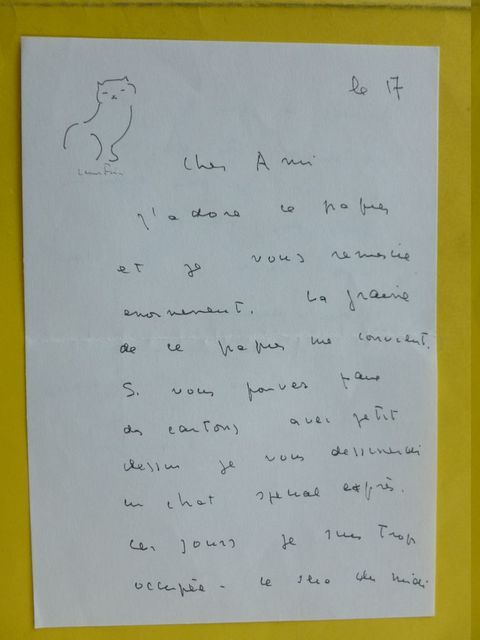 le 17
Cher Ami
J'adore ce papier
et je vous remercie
enormement. La graine
de ce papier me convient.
Si vous pouvez faire
des cartons avec petit
dessin je vous dessinerai
un chat special exprès.
Ces jours je suis trop
occupée - Le des midi